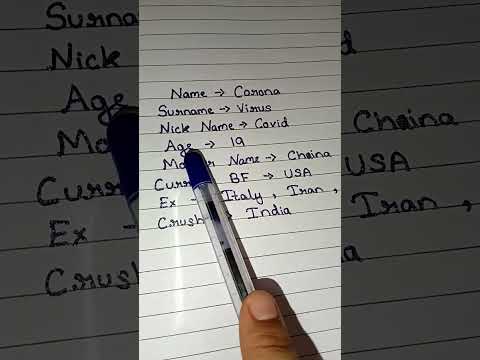 Name → Corona
Surname → Virus
Nick Name → Covid
Age → 19
Name → China
BF → USA
Ex → Italy, Iran,
Crush → India